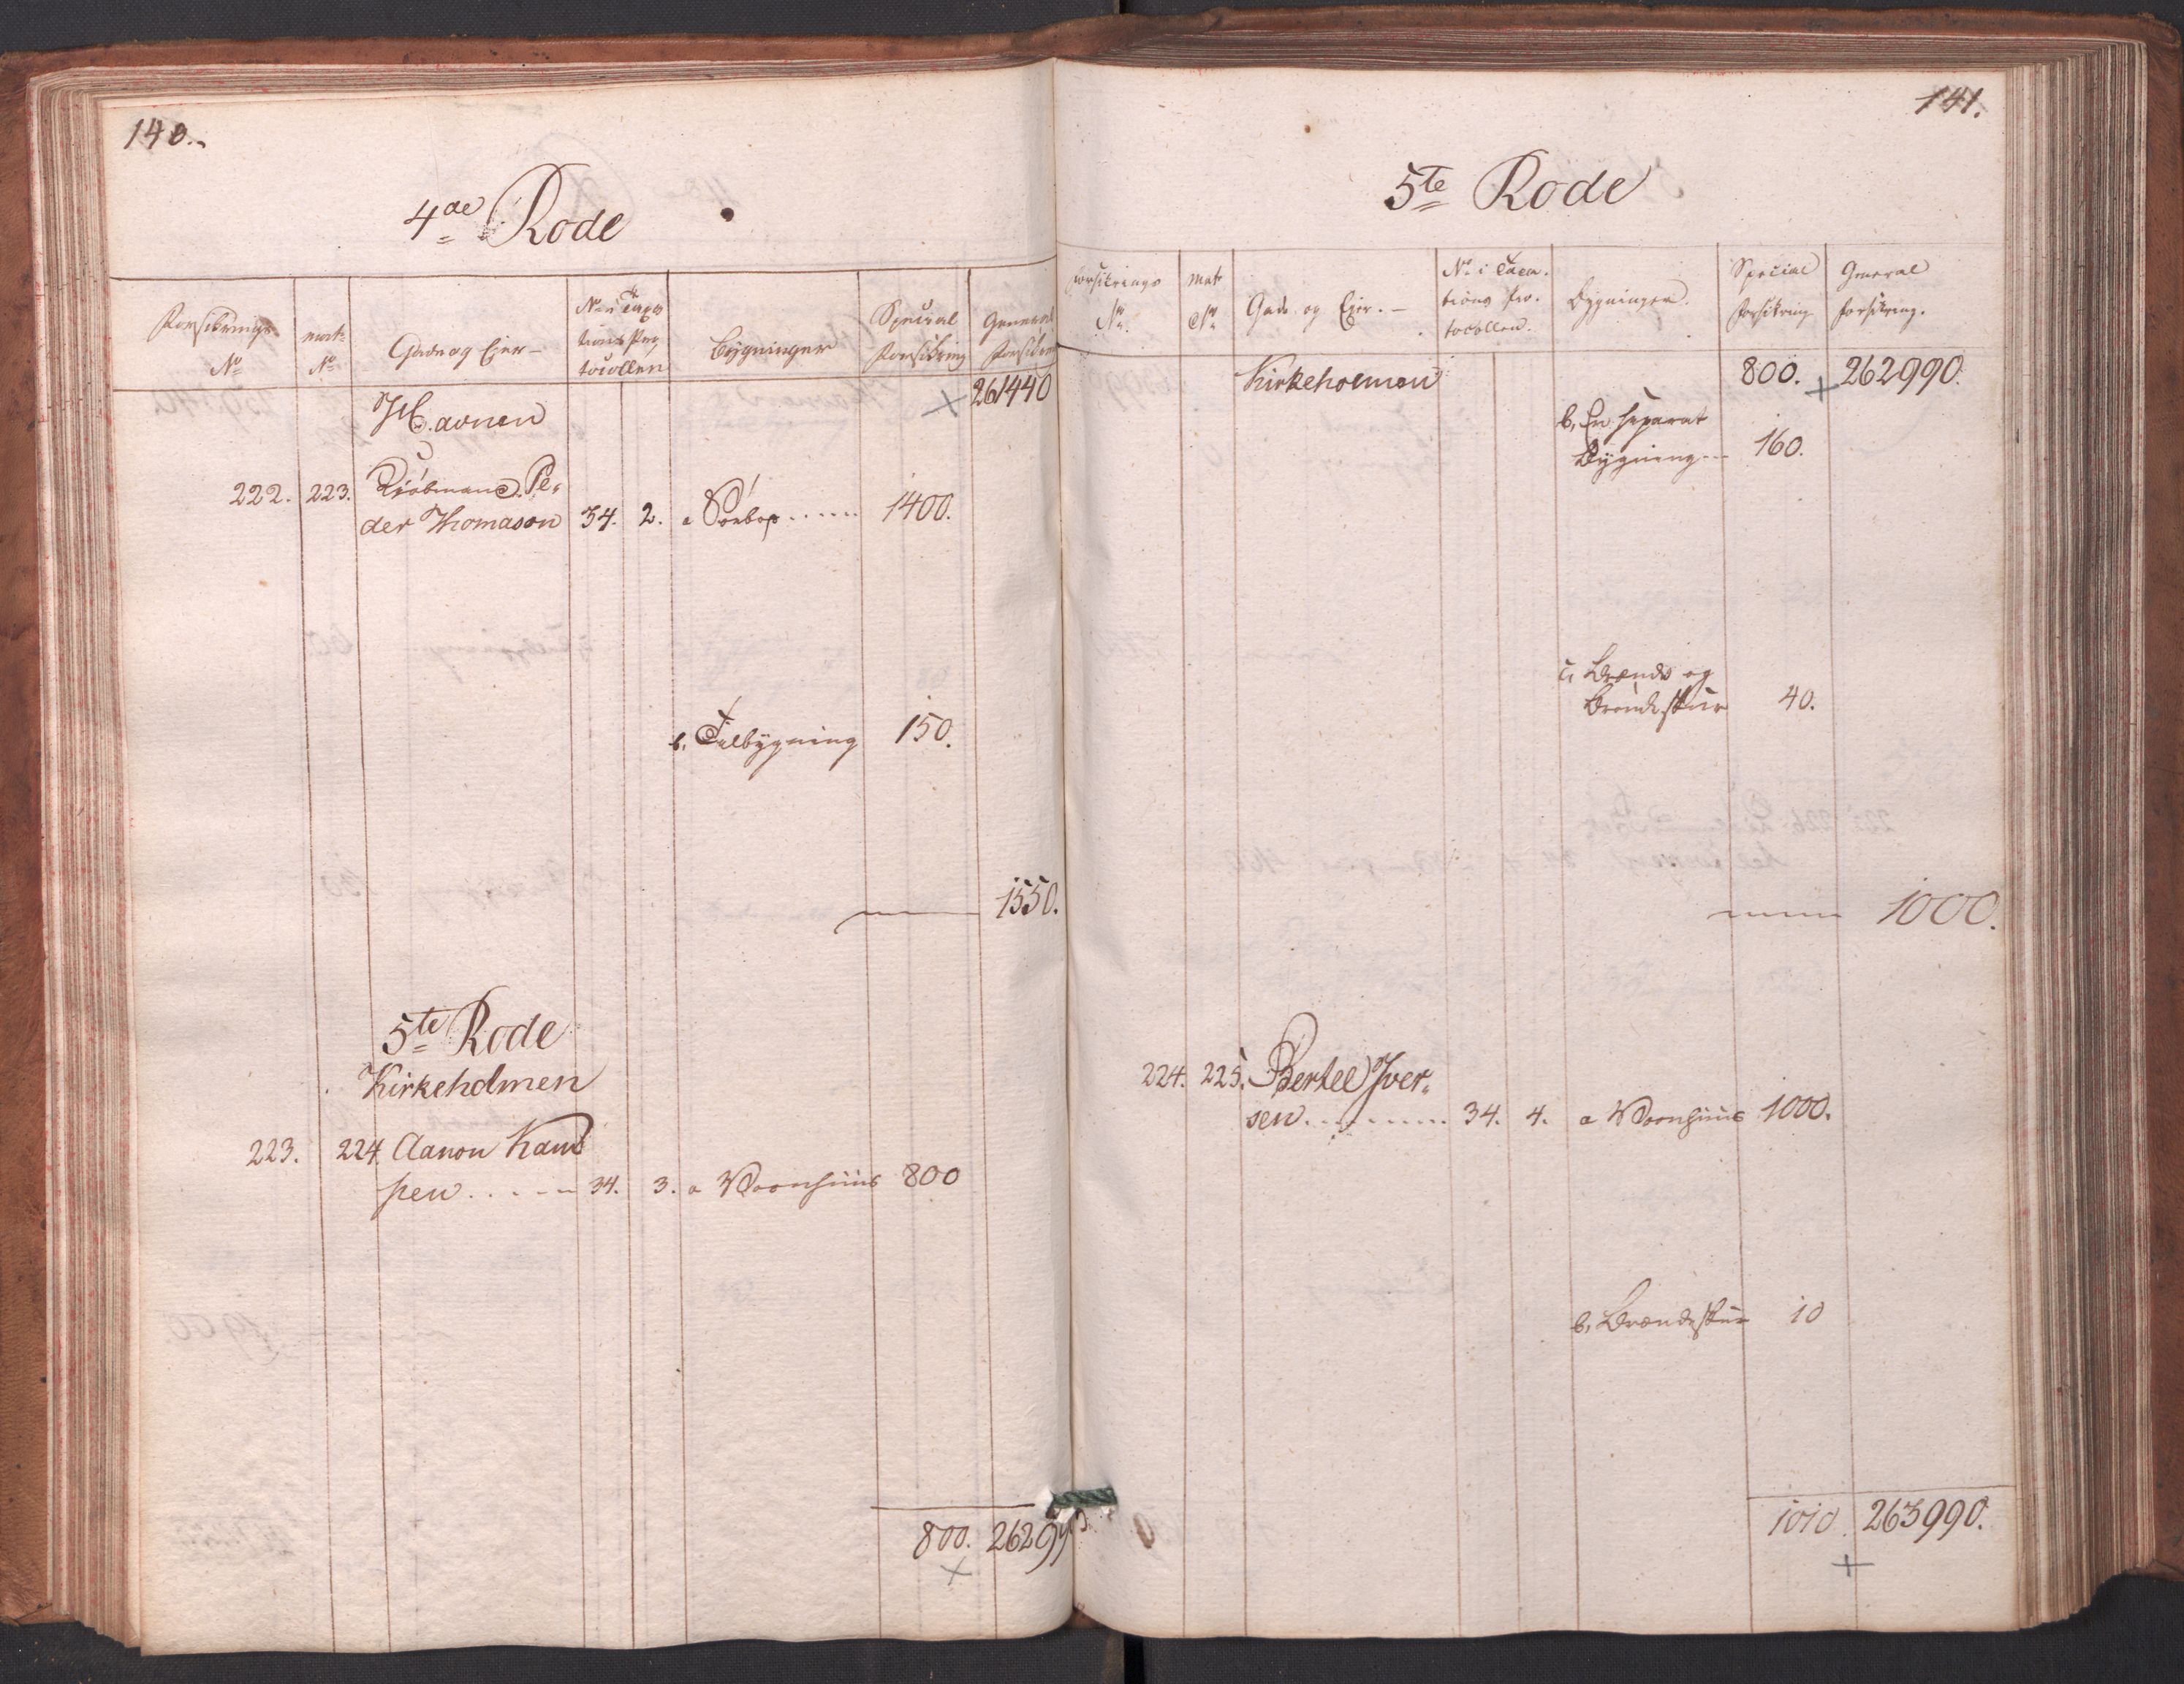 140.
4de Rode
Forsikrings No
Matr. No
Gade og Ejer
No i Taxations Protocollen
Bygninger
Special Forsikring
General Forsikring
261440
Havnen
222. 223. Kiøbmand Pe-
der Thomason 34. 2. a 1400.
b, 150.
1550.
5te Rode
Kirkeholmen
223. 224. Aanon Kand
sen 34. 3. a Vaanhuus 800
800. 26299
141.
5te Rode
Forsikrings No
Matr No
Gade og Ejer.
No i Taxa-
tions Pro-
tocollen.
Bygninger.
Special Forsikring
General Forsikring.
Kirkeholmen 800. 262990.
b, En separat
Bygning 160.
c, Brende og
Brendeskuur 40.
1000.
224. 225. Bertel Iver-
sen 34. 4. a Vaanhuus 1000.
b, Brendeskuur 10
1010. 263990.